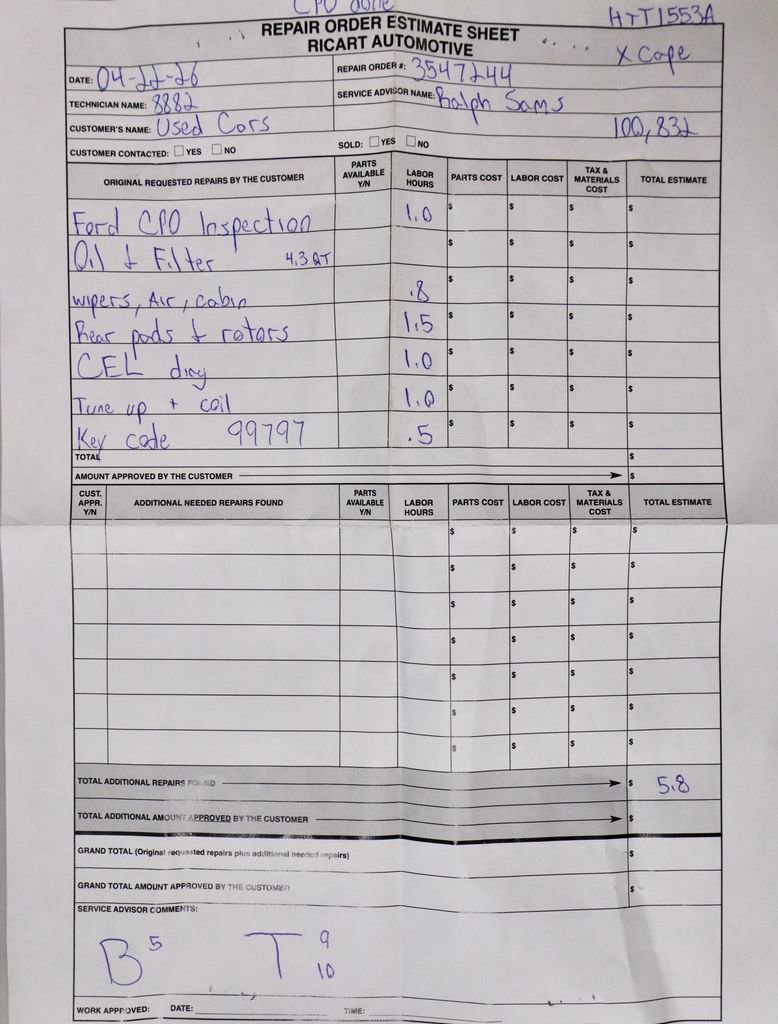 CPO done
HTT1553A
REPAIR ORDER ESTIMATE SHEET
RICART AUTOMOTIVE
X Cape
DATE: 04-22-26
REPAIR ORDER #: 3547244
TECHNICIAN NAME: 8882
SERVICE ADVISOR NAME: Ralph Sams
CUSTOMER'S NAME: Used Cars
100,832
CUSTOMER CONTACTED: YES NO
SOLD: YES NO
ORIGINAL REQUESTED REPAIRS BY THE CUSTOMER PARTS AVAILABLE Y/N LABOR HOURS PARTS COST LABOR COST TAX & MATERIALS COST TOTAL ESTIMATE
Ford CPO Inspection 1.0 $ $ $ $
Oil + Filter 4.3 QT $ $ $ $
wipers, Air, cabin .8 $ $ $ $
Rear pads + rotors 1.5 $ $ $ $
CEL diag 1.0 $ $ $ $
Tune up + coil 1.0 $ $ $ $
Key code 99797 .5 $ $ $ $
TOTAL $
AMOUNT APPROVED BY THE CUSTOMER $
CUST. APPR. Y/N ADDITIONAL NEEDED REPAIRS FOUND PARTS AVAILABLE Y/N LABOR HOURS PARTS COST LABOR COST TAX & MATERIALS COST TOTAL ESTIMATE
$ $ $ $
$ $ $ $
$ $ $ $
$ $ $ $
$ $ $ $
$ $ $ $
$ $ $ $
TOTAL ADDITIONAL REPAIRS FOUND $ 5.8
TOTAL ADDITIONAL AMOUNT APPROVED BY THE CUSTOMER $
GRAND TOTAL (Original requested repairs plus additional needed repairs) $
GRAND TOTAL AMOUNT APPROVED BY THE CUSTOMER $
SERVICE ADVISOR COMMENTS:
B 5 T 9
10
WORK APPROVED: DATE: TIME: